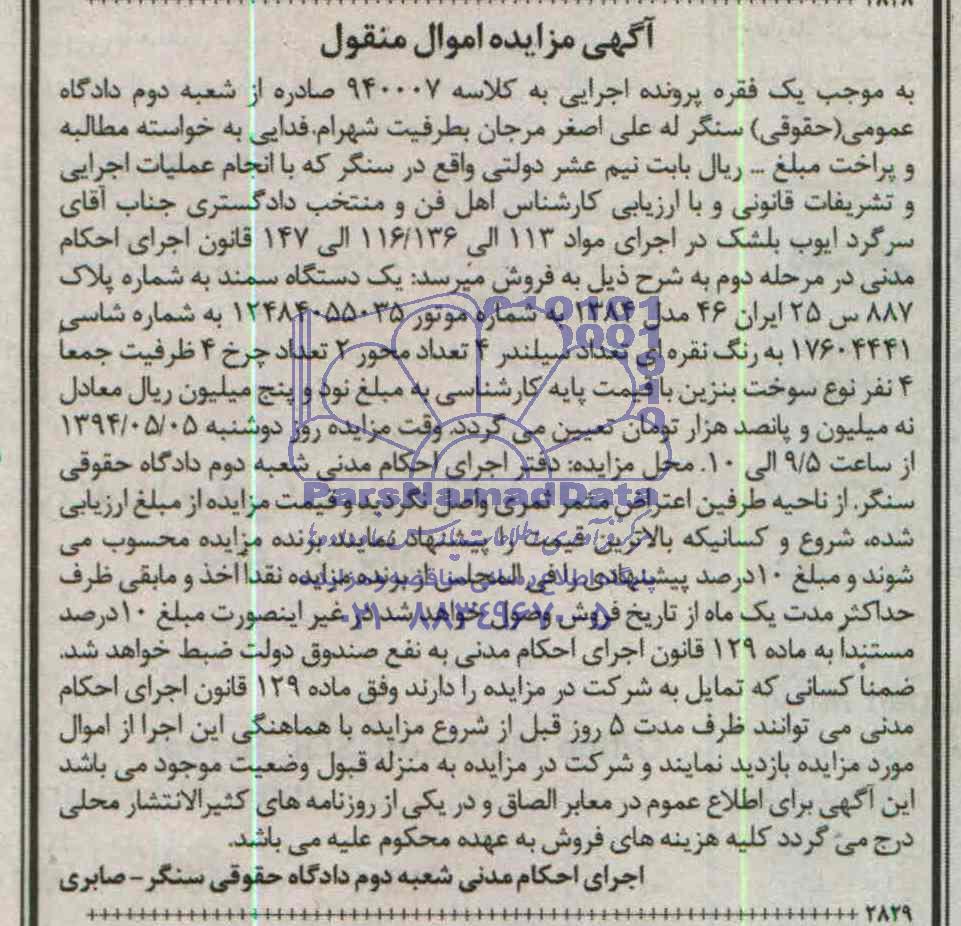 ۲۸۲۸
آگهی مزایده اموال منقول
به موجب یک فقره پرونده اجرایی به کلاسه ۹۴۰۰۰۷ صادره از شعبه دوم دادگاه
عمومی(حقوقی) سنگر له علی اصغر مرجان بطرفیت شهرام.فدایی به خواسته مطالبه
و پراخت مبلغ ... ریال بابت نیم عشر دولتی واقع در سنگر که با انجام عملیات اجرایی
و تشریفات قانونی و با ارزیابی کارشناس اهل فن و منتخب دادگستری جناب آقای
سرگرد ایوب بلشک در اجرای مواد ۱۱۳ الی ۱۱۶/۱۳۶ الی ۱۴۷ قانون اجرای احکام
مدنی در مرحله دوم به شرح ذیل به فروش میرسد: یک دستگاه سمند به شماره پلاک
۸۸۷ س ۲۵ ایران ۴۶ مدل ۱۳۸۴ به شماره موتور ۱۲۴۸۴۰۵۵۰۳۵ به شماره شاسی
۱۷۶۰۴۴۴۱ به رنگ نقره ای تعداد سیلندر ۴ تعداد محور ۲ تعداد چرخ ۴ ظرفیت جمعاً
۴ نفر نوع سوخت بنزین با قیمت پایه کارشناسی به مبلغ نود و پنج میلیون ریال معادل
نه میلیون و پانصد هزار تومان تعیین می گردد. وقت مزایده روز دوشنبه ۱۳۹۴/۰۵/۰۵
از ساعت ۹/۵ الی ۱۰. محل مزایده: دفتر اجرای احکام مدنی شعبه دوم دادگاه حقوقی
سنگر. از ناحیه طرفین اعتراض مثمر ثمری واصل نگردید و قیمت مزایده از مبلغ ارزیابی
شده، شروع و کسانیکه بالاترین قیمت را پیشنهاد نمایند برنده مزایده محسوب می
شوند و مبلغ ۱۰درصد پیشنهادی را فی المجلس از برنده مزایده نقداً اخذ و مابقی ظرف
حداکثر مدت یک ماه از تاریخ فروش وصول خواهد شد در غیر اینصورت مبلغ ۱۰درصد
مستنداً به ماده ۱۲۹ قانون اجرای احکام مدنی به نفع صندوق دولت ضبط خواهد شد.
ضمناً کسانی که تمایل به شرکت در مزایده را دارند وفق ماده ۱۲۹ قانون اجرای احکام
مدنی می توانند ظرف مدت ۵ روز قبل از شروع مزایده با هماهنگی این اجرا از اموال
مورد مزایده بازدید نمایند و شرکت در مزایده به منزله قبول وضعیت موجود می باشد
این آگهی برای اطلاع عموم در معابر الصاق و در یکی از روزنامه های کثیرالانتشار محلی
درج می گردد کلیه هزینه های فروش به عهده محکوم علیه می باشد.
اجرای احکام مدنی شعبه دوم دادگاه حقوقی سنگر - صابری
۲۸۲۹
ParsNamadData
پایگاه اطلاع رسانی مناقصه و مزایده
۰۲۱-۸۸۳۴۹۶۷۰-۵